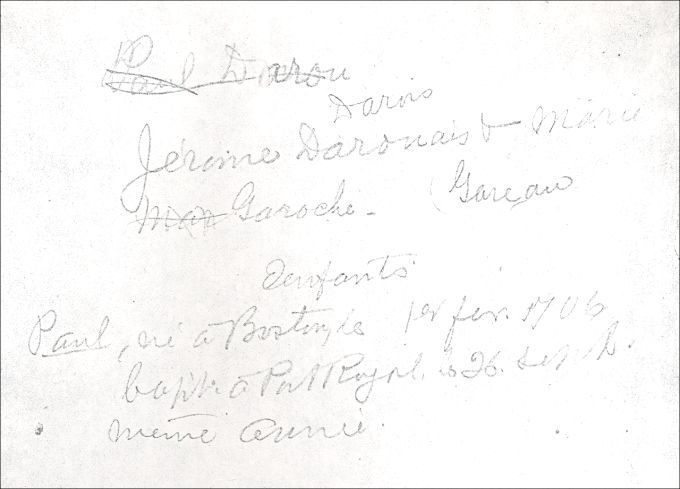 Paul Darou
Darois
Jérôme Darouais & Marie
Garoche. (Gareau
enfants
Paul, né à Boston, le 1er fév. 1706
bapt. à Port Royal. le 26. sept.
même année.